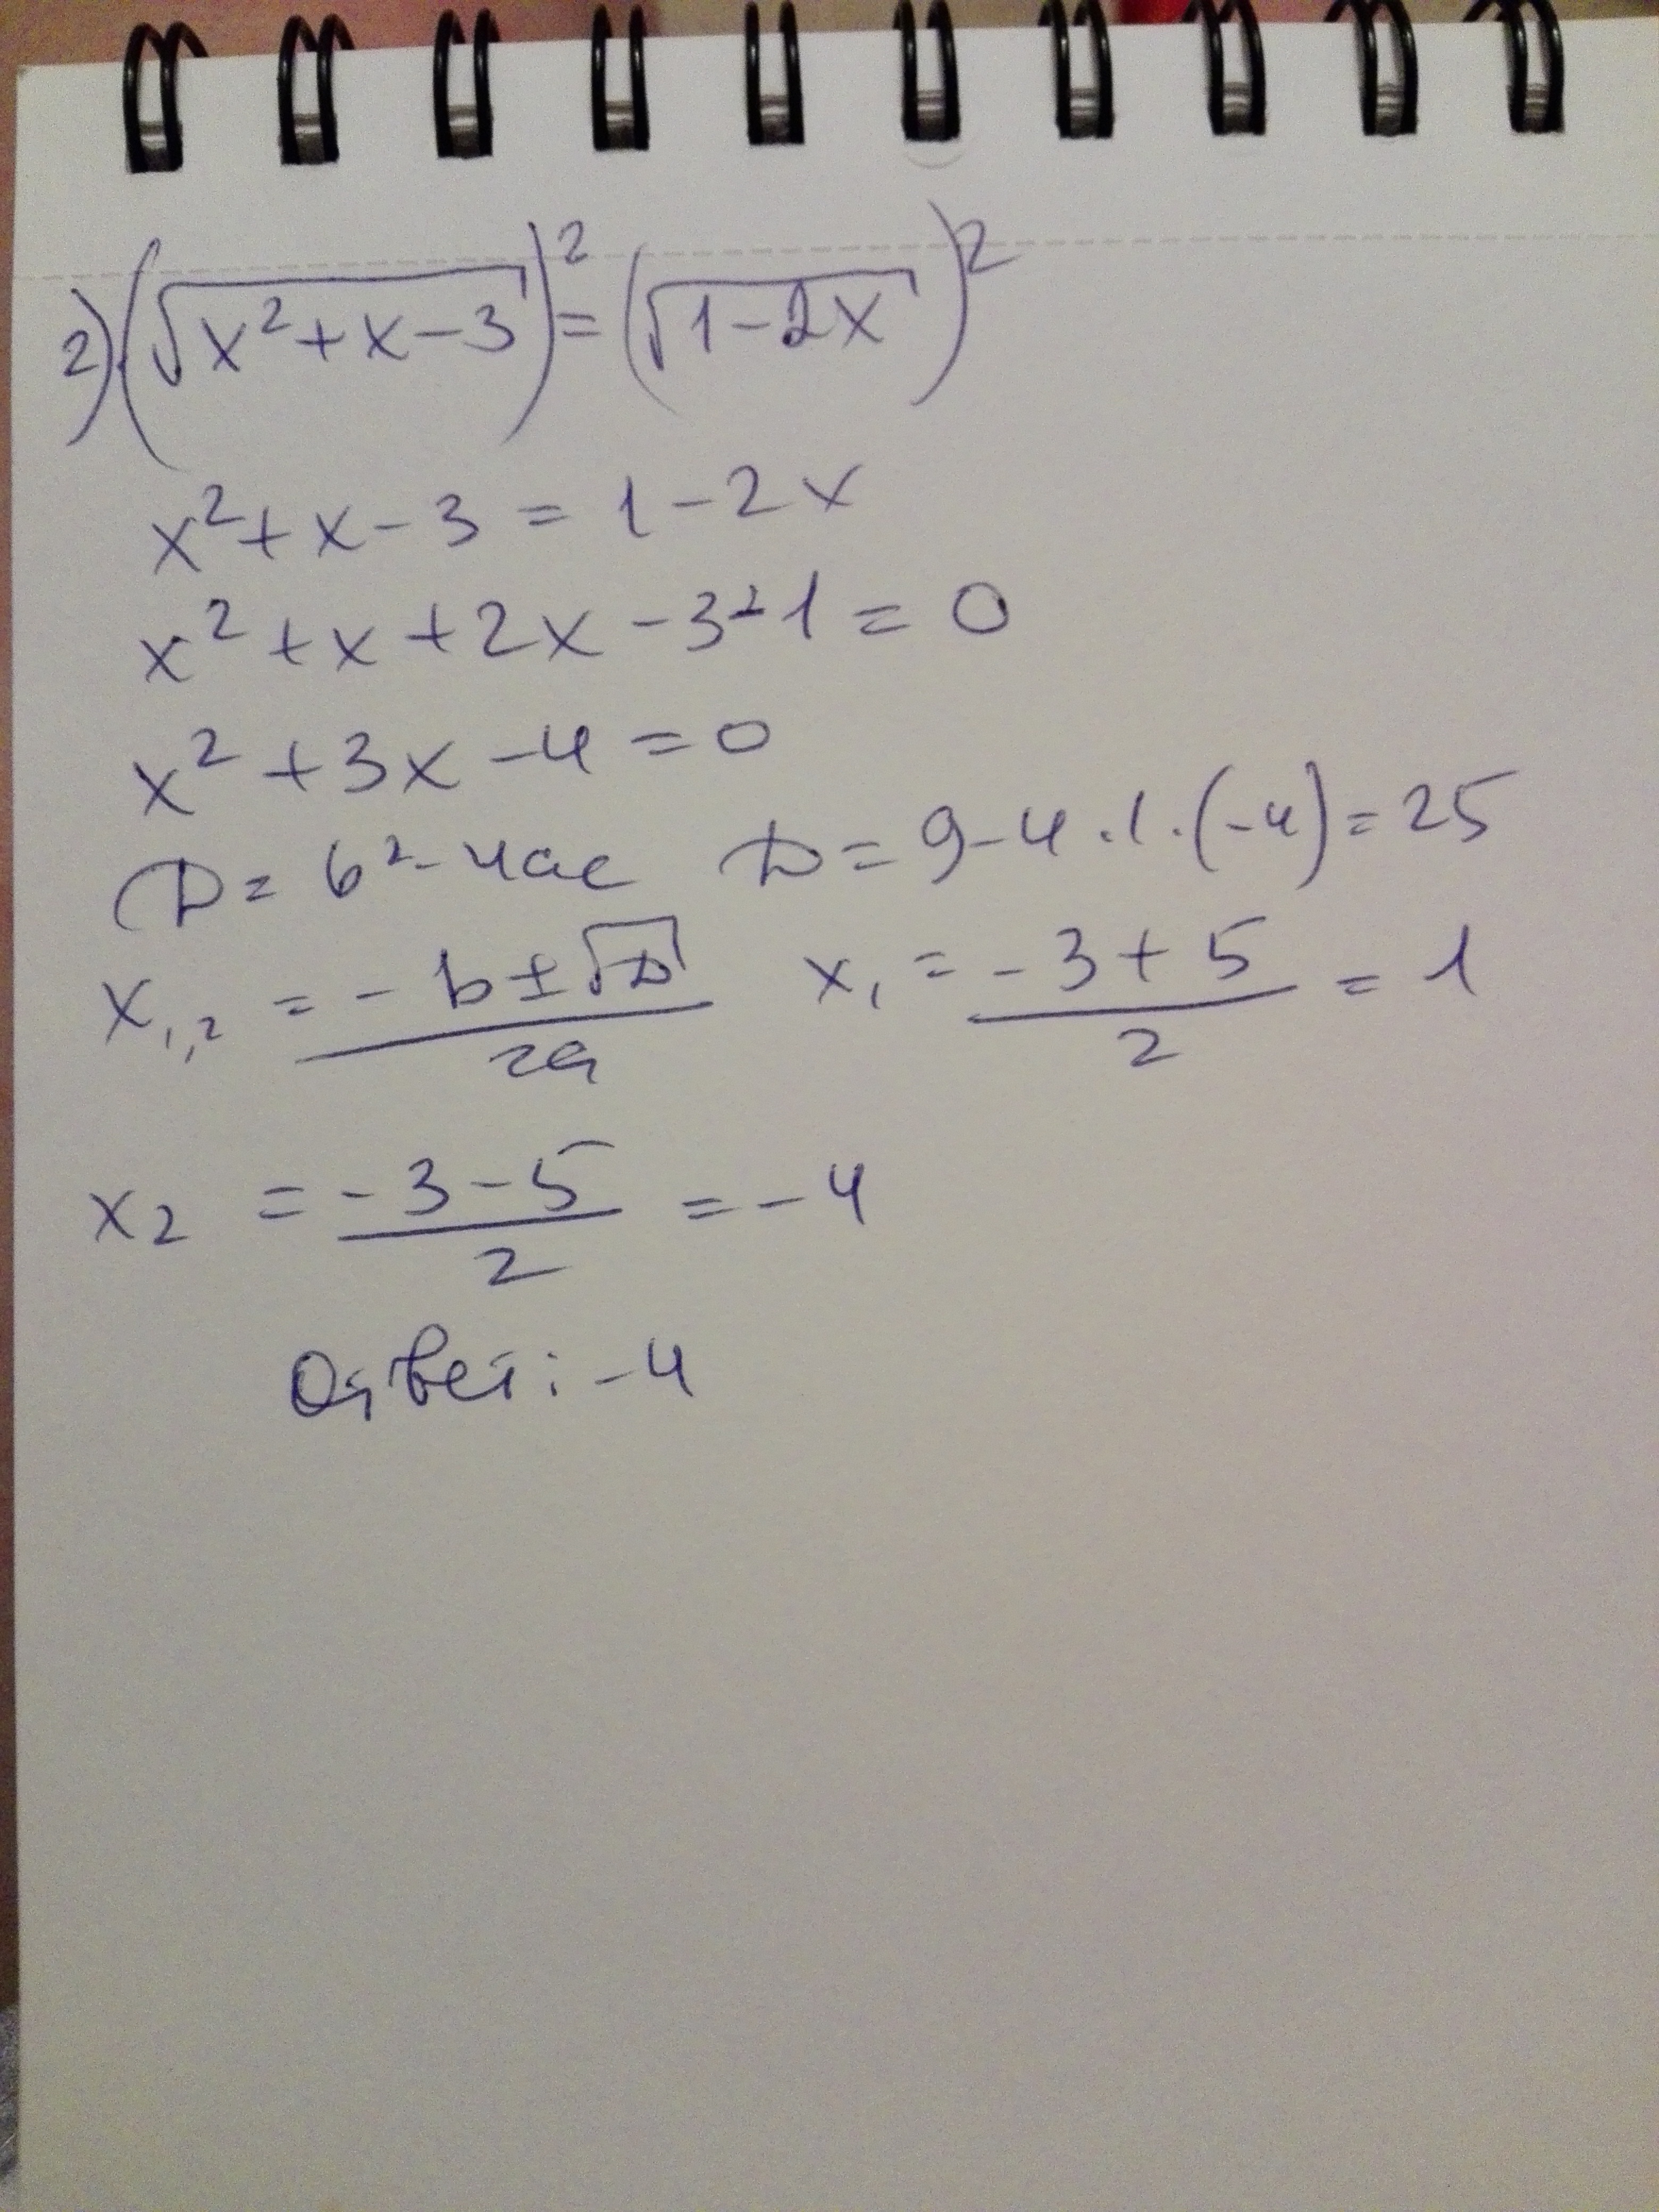 2) (√(x²+x-3))² = (√(1-2x))²
x²+x-3 = 1-2x
x²+x+2x-3-1 = 0
x²+3x-4 = 0
D = b²-4ac D = 9-4·1·(-4) = 25
x₁,₂ = (-b±√D)/2a x₁ = (-3+5)/2 = 1
x₂ = (-3-5)/2 = -4
Ответ: -4